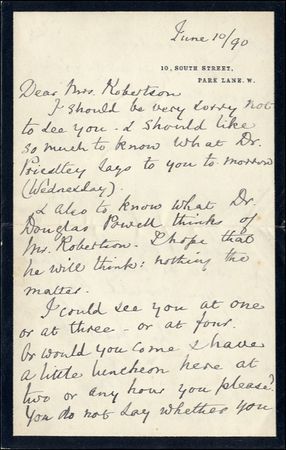 June 10/90
10, SOUTH STREET,
PARK LANE. W.
Dear Mrs. Robertson
I should be very sorry not
to see you. & should like
so much to know what Dr.
Priestley says to you to morrow
(Wednesday).
& also to know what Dr.
Douglas Powell thinks of
Mr. Robertson. I hope that
he will think: nothing the
matter.
I could see you at one
or at three - or at four.
Or would you come & have
a little luncheon here at
two or any hour you please?
You do not say whether you